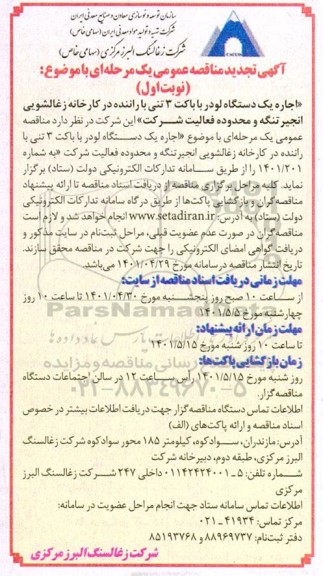 سازمان توسعه و نوسازی معادن و صنایع معدنی ایران
شرکت تهیه و تولید مواد معدنی ایران (سهامی خاص)
شرکت زغالسنگ البرز مرکزی (سهامی خاص)
آگهی تجدید مناقصه عمومی یک مرحله‌ای با موضوع:
(نوبت اول)
«اجاره یک دستگاه لودر با باکت ۳ تنی با راننده در کارخانه زغالشویی
انجیر تنگه و محدوده فعالیت شرکت» این شرکت در نظر دارد مناقصه
عمومی یک مرحله‌ای با موضوع «اجاره یک دستگاه لودر با باکت ۳ تنی با
راننده در کارخانه زغالشویی انجیر تنگه و محدوده فعالیت شرکت «به شماره
۱۴۰۱/۲۰۱ را از طریق سامانه تدارکات الکترونیکی دولت (ستاد) برگزار
نماید. کلیه مراحل برگزاری مناقصه از دریافت اسناد مناقصه تا ارائه پیشنهاد
مناقصه‌گران و بازگشایی پاکت‌ها از طریق درگاه سامانه تدارکات الکترونیکی
دولت (ستاد) به آدرس: www.setadiran.ir انجام خواهد شد و لازم است
مناقصه‌گران در صورت عدم عضویت قبلی، مراحل ثبت‌نام در سایت مذکور و
دریافت گواهی امضای الکترونیکی را جهت شرکت در مناقصه محقق سازند.
تاریخ انتشار مناقصه در سامانه مورخ ۱۴۰۱/۰۴/۲۹ می‌باشد.
مهلت زمانی دریافت اسناد مناقصه از سایت:
از ساعت ۱۰ صبح روز پنجشنبه مورخ ۱۴۰۱/۰۴/۳۰ تا ساعت ۱۰ روز
چهارشنبه مورخ ۱۴۰۱/۵/۵
مهلت زمان ارائه پیشنهاد:
تا ساعت ۱۰ روز شنبه مورخ ۱۴۰۱/۵/۱۵
زمان بازگشایی پاکت‌ها:
روز شنبه مورخ ۱۴۰۱/۵/۱۵ رأس ساعت ۱۲ در سالن اجتماعات دستگاه
مناقصه‌گزار.
اطلاعات تماس دستگاه مناقصه گزار جهت دریافت اطلاعات بیشتر در خصوص
اسناد مناقصه و ارائه پاکت‌های (الف)
آدرس: مازندران، سوادکوه، کیلومتر ۱۸۵ محور سوادکوه شرکت زغالسنگ
البرز مرکزی، طبقه دوم، دبیرخانه شرکت
شماره تلفن: ۵ ـ ۰۱۱۴۲۴۲۴۰۰۱ داخلی ۲۴۷ شرکت زغالسنگ البرز
مرکزی
اطلاعات تماس سامانه ستاد جهت انجام مراحل عضویت در سامانه:
مرکز تماس: ۴۱۹۳۴ ـ ۰۲۱
دفتر ثبت‌نام: ۸۸۹۶۹۷۳۷ و ۸۵۱۹۳۷۶۸
شرکت زغالسنگ البرز مرکزی
ParsNamadData
۰۲۱-۸۸۳۴۹۶۷۰-۵